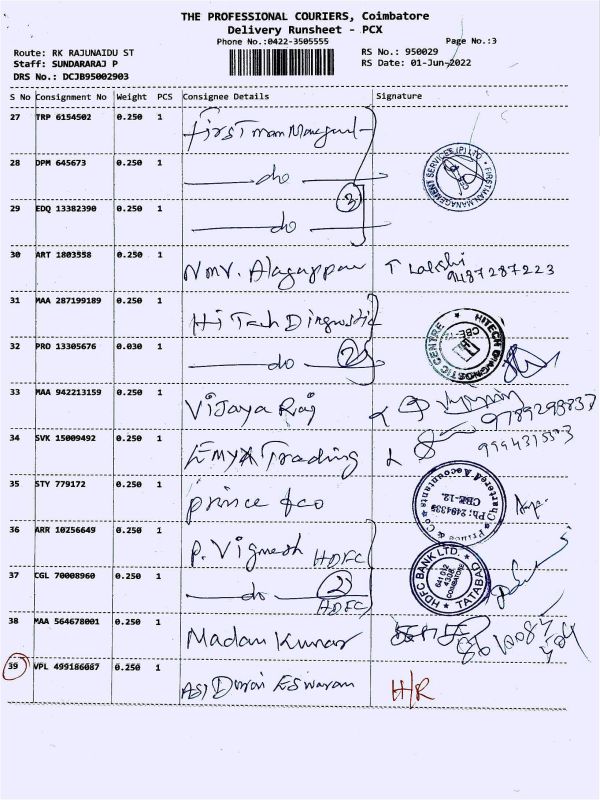 THE PROFESSIONAL COURIERS, Coimbatore
Delivery Runsheet - PCX
Phone No.:0422-3505555
Page No.:3
Route: RK RAJUNAIDU ST
RS No.: 950029
Staff: SUNDARARAJ P
RS Date: 01-Jun-2022
DRS No.: DCJB95002903
S No Consignment No Weight PCS Consignee Details Signature
27 TRP 6154502 0.250 1
28 DPM 645673 0.250 1 do
3
FIRSTMAN MANAGEMENT SERVICES (P) LTD
29 EDQ 13382390 0.250 1 do
30 ART 1803558 0.250 1 NMV. Alagappan T Lakshi
9487287223
31 MAA 287199189 0.250 1 Hi Tech Diagnostic
HITECH DIAGNOSTIC CENTRE
32 PRO 13305676 0.030 1 do 2
33 MAA 942213159 0.250 1 Vijaya Raj
9789298837
34 SVK 15009492 0.250 1 EMYA Trading
35 STY 779172 0.250 1 prince & co
Prince & Co Chartered Accountants
CBE-12.
36 ARR 10256649 0.250 1 P. Vignesh HDFC
37 CGL 70008960 0.250 1 do 2
HDFC
HDFC BANK LTD. TATABAD
641 012
COIMBATORE
38 MAA 564678001 0.250 1 Madan Kumar
39 VPL 499186087 0.250 1 Durai Eswaran H/R